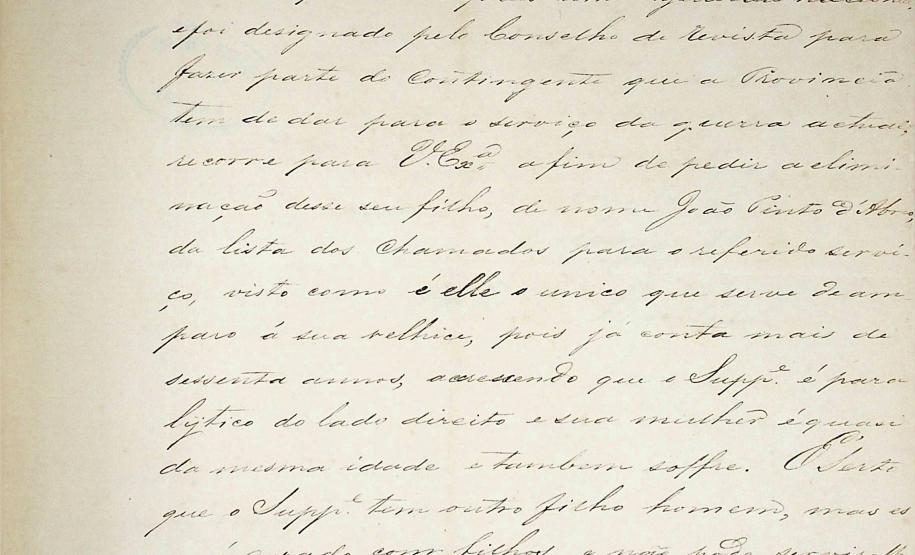 e foi designado pelo Conselho de revista para
fazer parte do contingente que a Provincia
tem de dar para o serviço da guerra actual,
recorre para V. Exª a fim de pedir a elimi-
nação desse seu filho, de nome João Pinto d'Abreo,
da lista dos chamados para o referido servi-
ço, visto como é elle o unico que serve de am
paro á sua velhice, pois já conta mais de
sessenta annos, acrescendo que o Suppe. é para
lytico do lado direito e sua mulher é quasi
da mesma idade e tambem soffre. É Certo
que o Suppe. tem outro filho homem, mas es
com filhos, e não pode